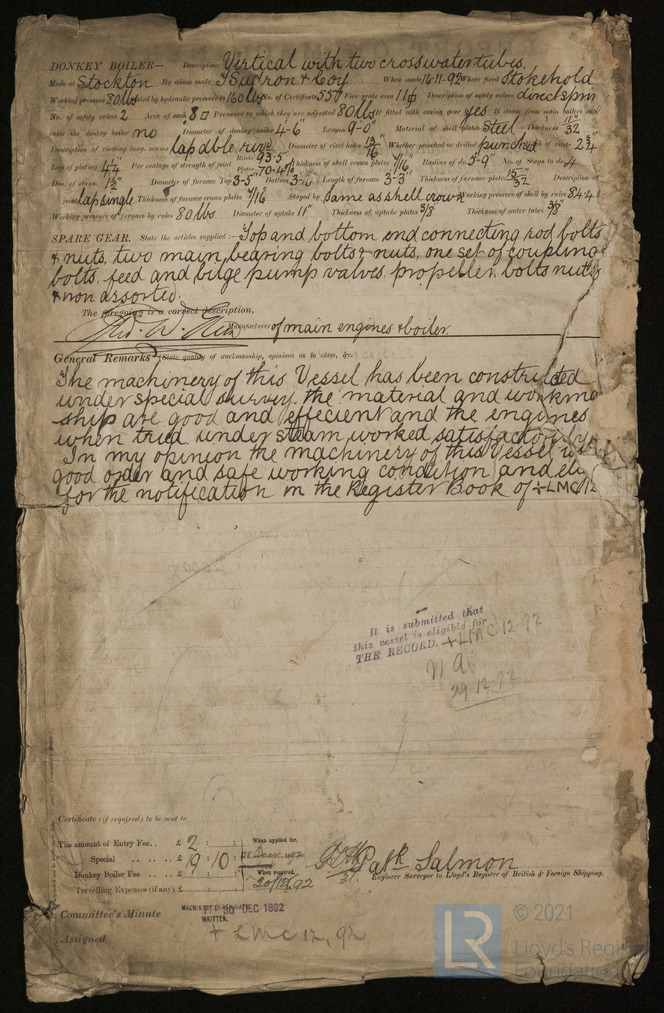 DONKEY BOILER— Description Vertical with two cross water tubes.
Made at Stockton By whom made When made 16·11·92 Where fixed Stokehold
Working pressure 80 lbs tested by hydraulic pressure to 160 lbs No. of Certificate 550 Fire grate area 11 Description of safety valves direct spri
No. of safety valves 2 Area of each 8 Pressure to which they are adjusted 80 lbs If fitted with easing gear yes If steam from main boilers can
enter the donkey boiler no Diameter of donkey boiler 4'-6" Length 9'-0" Material of shell plates Steel Thickness 11/32
Description of riveting long. seams lap dble riv Diameter of rivet holes 13/16 Whether punched or drilled punched Pitch of rivets 2 3/4
Lap of plating 4 1/4 Per centage of strength of joint Rivets 93.5 Plates 70.4 Thickness of shell crown plates 7/16 Radius of do. 5'-9" No. of Stays to do. 4
Dia. of stays 1 1/2" Diameter of furnace Top 3'-5" Bottom Length of furnace 3'-3" Thickness of furnace plates 15/32 Description of
joint lap single Thickness of furnace crown plates 7/16 Stayed by same as shell crown Working pressure of shell by rules 84.4
Working pressure of furnace by rules 80 lbs Diameter of uptake 11" Thickness of uptake plates 3/8 Thickness of water tubes 3/8
SPARE GEAR. State the articles supplied:— Top and bottom end connecting rod bolts
& nuts, two main bearing bolts & nuts, one set of coupling
bolts, feed and bilge pump valves, propeller, bolts nuts
& iron assorted.
The foregoing is a correct description,
Manufacturer of main engines & boiler.
General Remarks (State quality of workmanship, opinions as to class, &c.
The machinery of this Vessel has been constructed
under special survey, the material and workma
ship are good and effecient and the engines
when tried under steam worked satisfactorily
In my opinion the machinery of this Vessel is
good order and safe working condition and eli
for the notification in the Register Book of +LMC 12
It is submitted that
this vessel is eligible for
THE RECORD. + LMC 12·92
29·12·92
Certificate (if required) to be sent to
The amount of Entry Fee.. £ 2 : : When applied for,
Special .. .. .. .. £ 19 : 10 : Decr. 1892
Donkey Boiler Fee .. .. £ : : When received,
Travelling Expenses (if any) £ : : 30/12/92
Patk Salmon
Engineer Surveyor to Lloyd's Register of British & Foreign Shipping.
Committee's Minute 30 DEC 1892
MACHINERY CERTIFICATE
WRITTEN.
Assigned + LMC 12, 92
LR © 2021
Lloyd's Register
Foundation